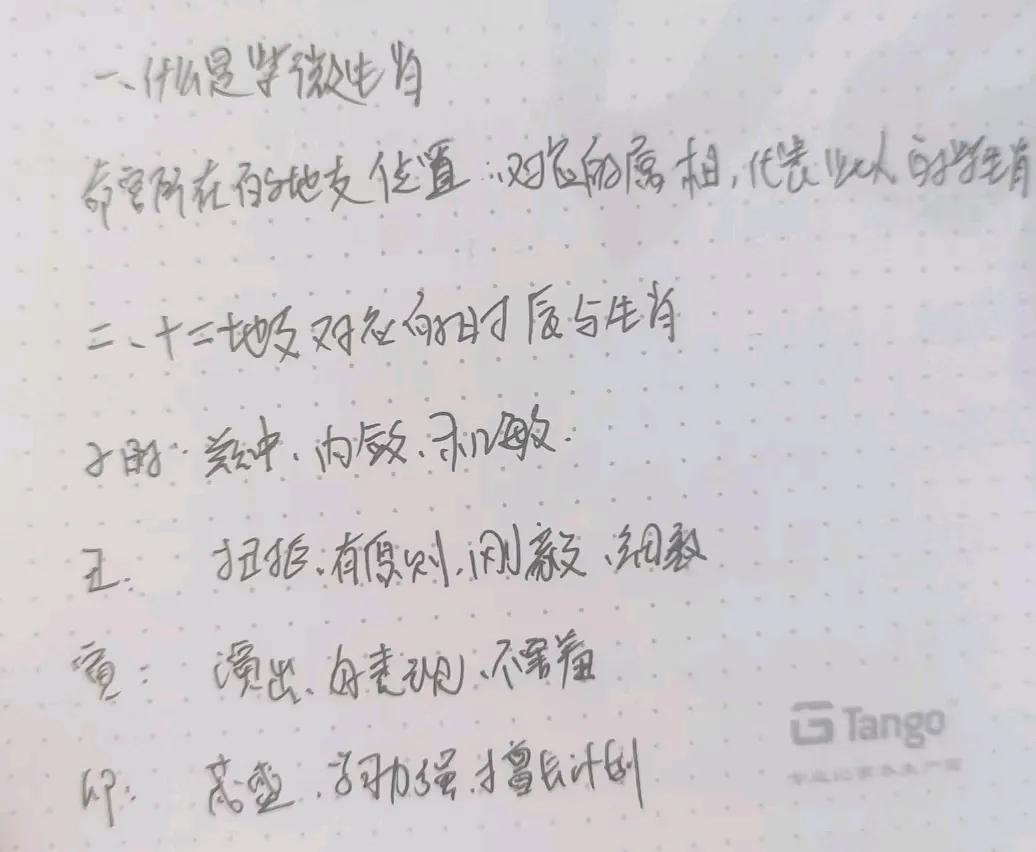 一、什么是紫微生肖
命宫所在的地支位置,对应的属相,代表此人的紫微生肖
二、十二地支对应的时辰与生肖
子时: 集中、内敛、敏
丑: 扭捏、有原则、刚毅、细致
寅: 演出、自表现、不害羞
卯: 茂盛、学习力强、擅长计划
Tango